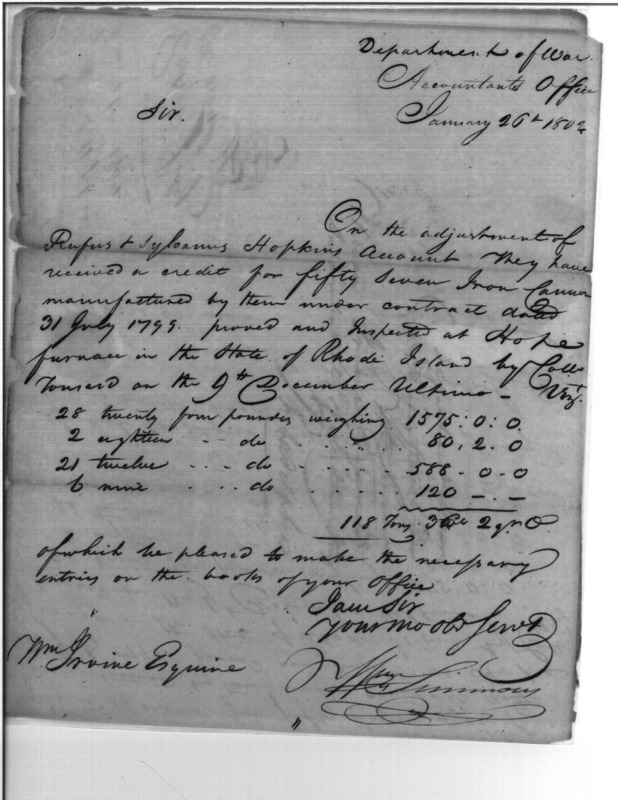 Department of War
Accountants Office
January 26th 1802
Sir.
On the adjustment of
Rufus & Sylvanus Hopkins Account they have
received a credit for fifty Seven Iron Cannon
manufactured by them under contract dated
31 July 1799. proved and Inspected at Hope
furnace in the State of Rhode Island by Collo
Tousard on the 9th December Ultimo — Vizt
28 twenty four pounders weighing 1575:0:0
2 eighteen .. do ..... 80,2.0
21 twelve ... do ..... 588-0-0
6 nine ... do ..... 120 -.-
118 Tons. 3 2 qrs 0.
of which be pleased to make the necessary
entries on the books of your Office
I am Sir
your mo obt Servt
Wm Simmons
Wm Irvine Esquire